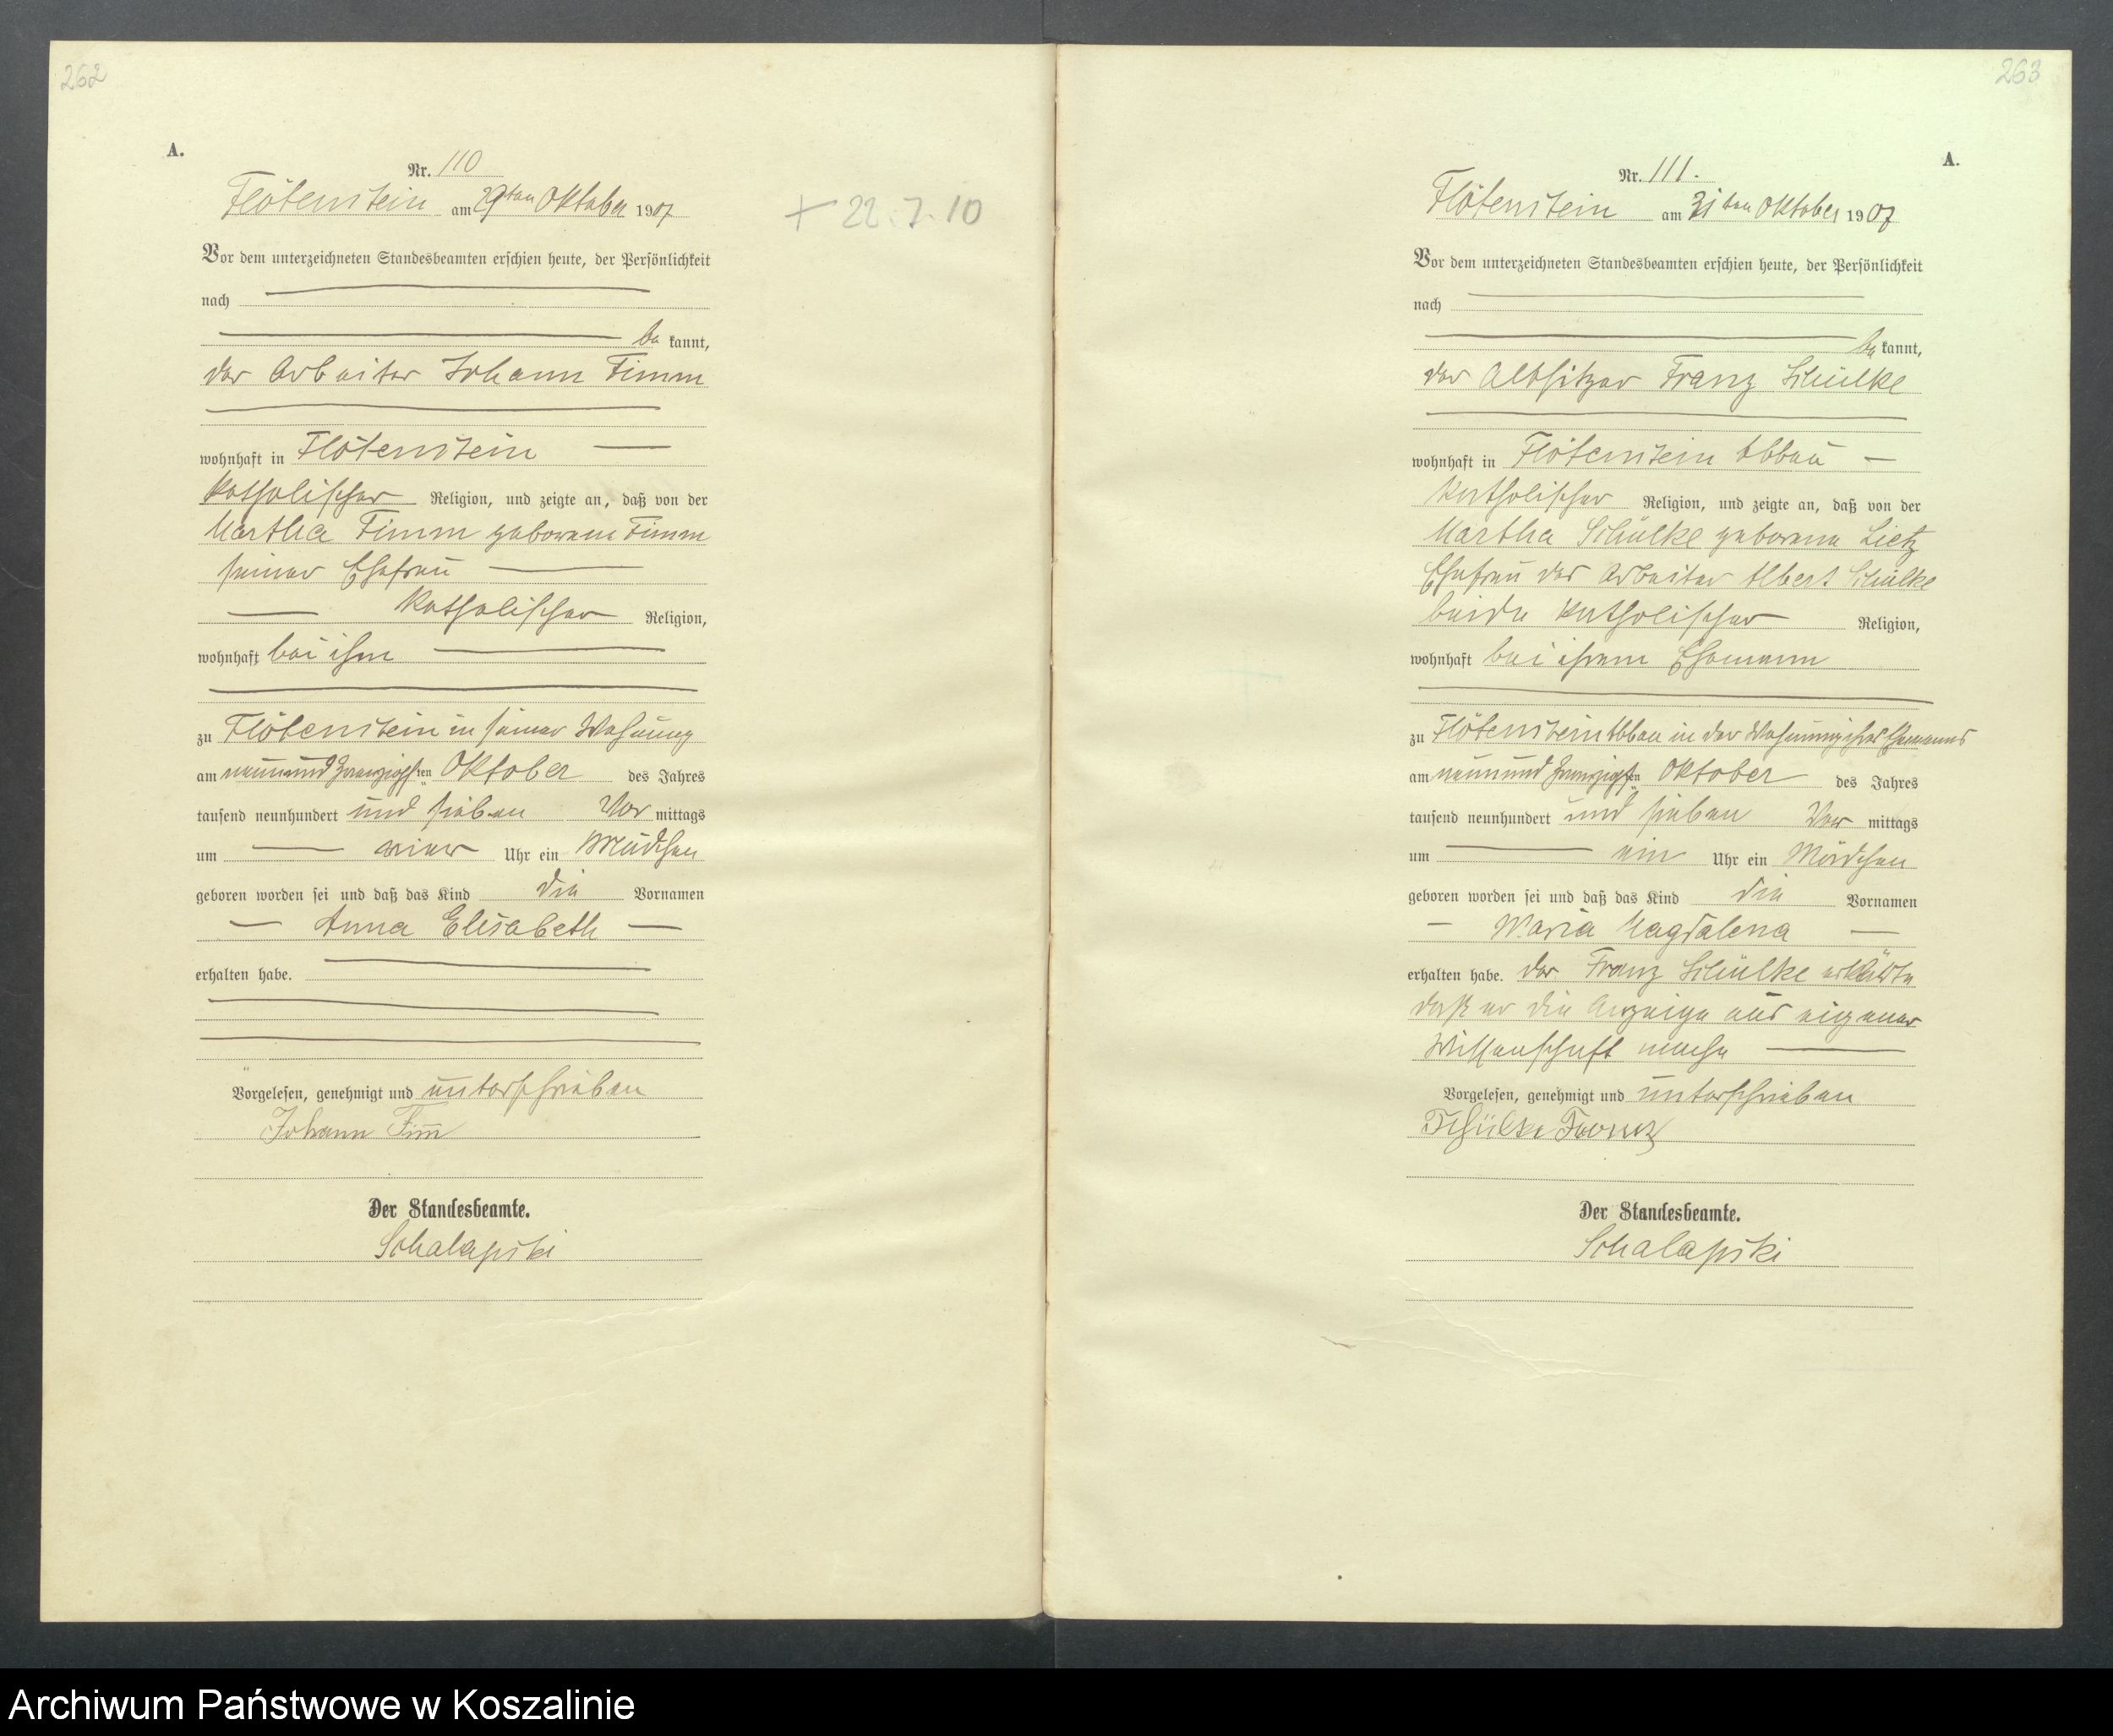 262
A.
Nr. 110
Flötenstein am 29ten Oktober 1907
+ 22.7.10
Vor dem unterzeichneten Standesbeamten erschien heute, der Persönlichkeit
nach
be kannt,
der Arbeiter Johann Timm
wohnhaft in Flötenstein
katholischer Religion, und zeigte an, daß von der
Martha Timm geborene Timm
seiner Ehefrau
katholischer Religion,
wohnhaft bei ihm
zu Flötenstein in seiner Wohnung
am neunundzwanzigsten Oktober des Jahres
tausend neunhundert und sieben Vor mittags
um vier Uhr ein Mädchen
geboren worden sei und daß das Kind die Vornamen
Anna Elisabeth
erhalten habe.
Vorgelesen, genehmigt und unterschrieben
Johann Tim̅
Der Standesbeamte.
Schalapski
263
A.
Nr. 111.
Flötenstein am 31ten Oktober 1907
Vor dem unterzeichneten Standesbeamten erschien heute, der Persönlichkeit
nach
be kannt,
der Altsitzer Franz Schülke
wohnhaft in Flötenstein Abbau
katholischer Religion, und zeigte an, daß von der
Martha Schülke geborene Lietz
Ehefrau des Arbeiter Albert Schülke
beide katholischer Religion,
wohnhaft bei ihrem Ehemann
zu Flötenstein Abbau in der Wohnung ihres Ehemanns
am neunundzwanzigsten Oktober des Jahres
tausend neunhundert und sieben Vor mittags
um ein Uhr ein Mädchen
geboren worden sei und daß das Kind die Vornamen
Maria Magdalena
erhalten habe. Der Franz Schülke erklärte
daß er die Anzeige aus eigener
Wissenschaft mache
Vorgelesen, genehmigt und unterschrieben
Schülke Franz
Der Standesbeamte.
Schalapski
Archiwum Państwowe w Koszalinie